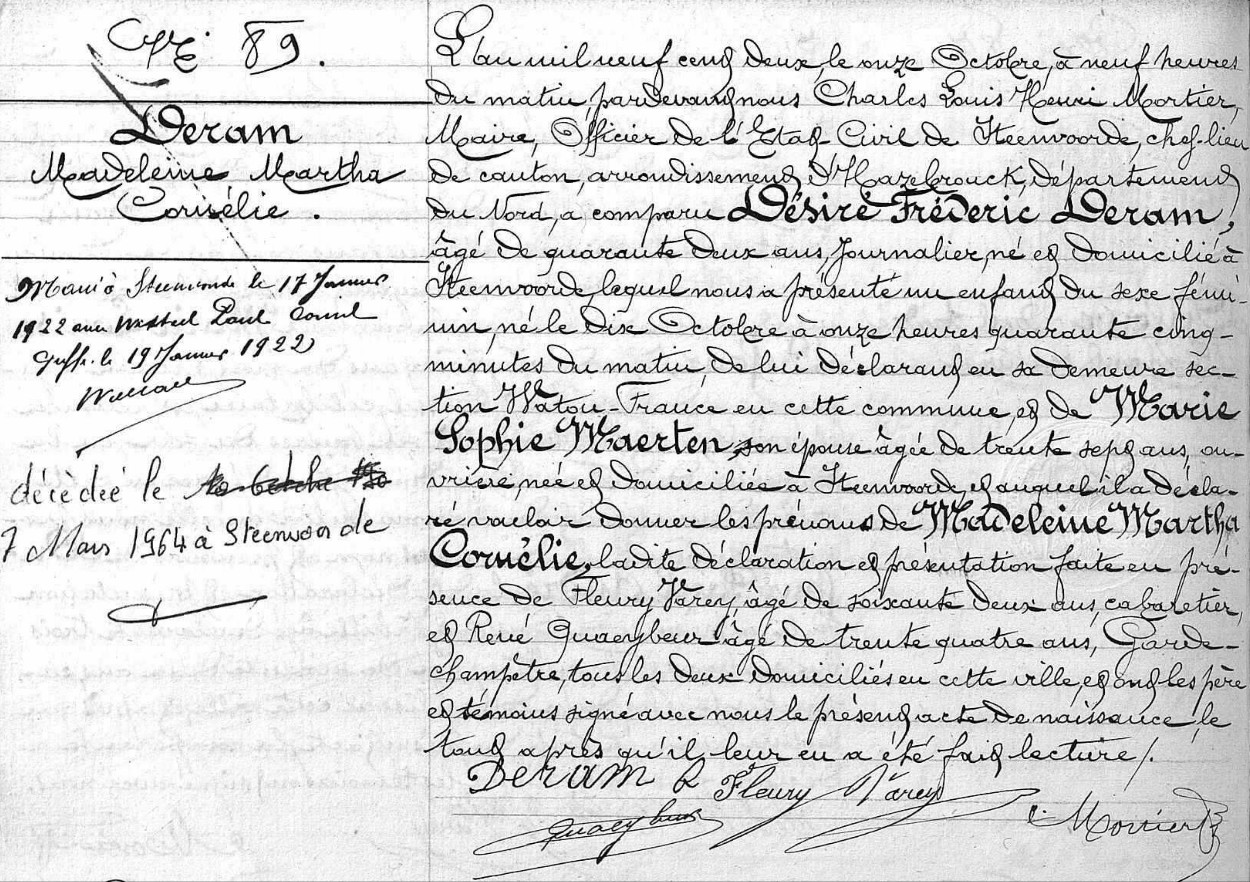 Nº 89.
Deram
Madeleine Martha
Cornélie.
Marié à Steenvoorde le 17 Janvier
1922 avec Paul
Greffe le 19 Janvier 1922
décédée le
7 Mars 1964 à Steenvoorde
L'an mil neuf cent deux, le onze Octobre, à neuf heures
du matin, pardevant nous Charles Louis Henri Mortier,
Maire, Officier de l'Etat-Civil de Steenvoorde, chef-lieu
de canton, arrondissement d'Hazebrouck, département
du Nord, a comparu Désiré Fréderic Deram,
âgé de quarante deux ans, Journalier, né et domicilié à
Steenvoorde, lequel nous a présenté un enfant du sexe fémi-
nin, né le dix Octobre à onze heures quarante cinq-
minutes du matin, de lui déclarant en sa demeure sec-
tion Watou-France en cette commune, et de Marie
Sophie Maerten son épouse âgée de trente sept ans, ou-
vrière, née et domiciliée à Steenvoorde, et auquel il a décla-
ré vouloir donner les prénoms de Madeleine Martha
Cornélie, la dite déclaration et présentation faite en pré-
sence de Fleury Varey âgé de soixante deux ans, cabaretier,
et René Quaeybeur âgé de trente quatre ans, Garde-
champêtre, tous les deux domiciliés en cette ville, et ont les père
et témoins signé avec nous le présent acte de naissance, le
tout après qu'il leur en a été fait lecture /.
Deram Fleury Varey
Quaeybeur
C. Mortier